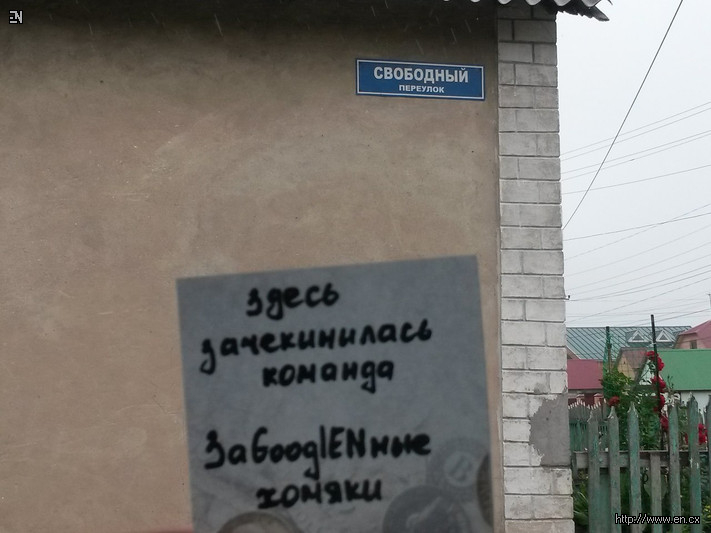 EN
СВОБОДНЫЙ
ПЕРЕУЛОК
здесь
зачекинилась
команда
ЗаGooglENные
хомяки
http://www.en.cx